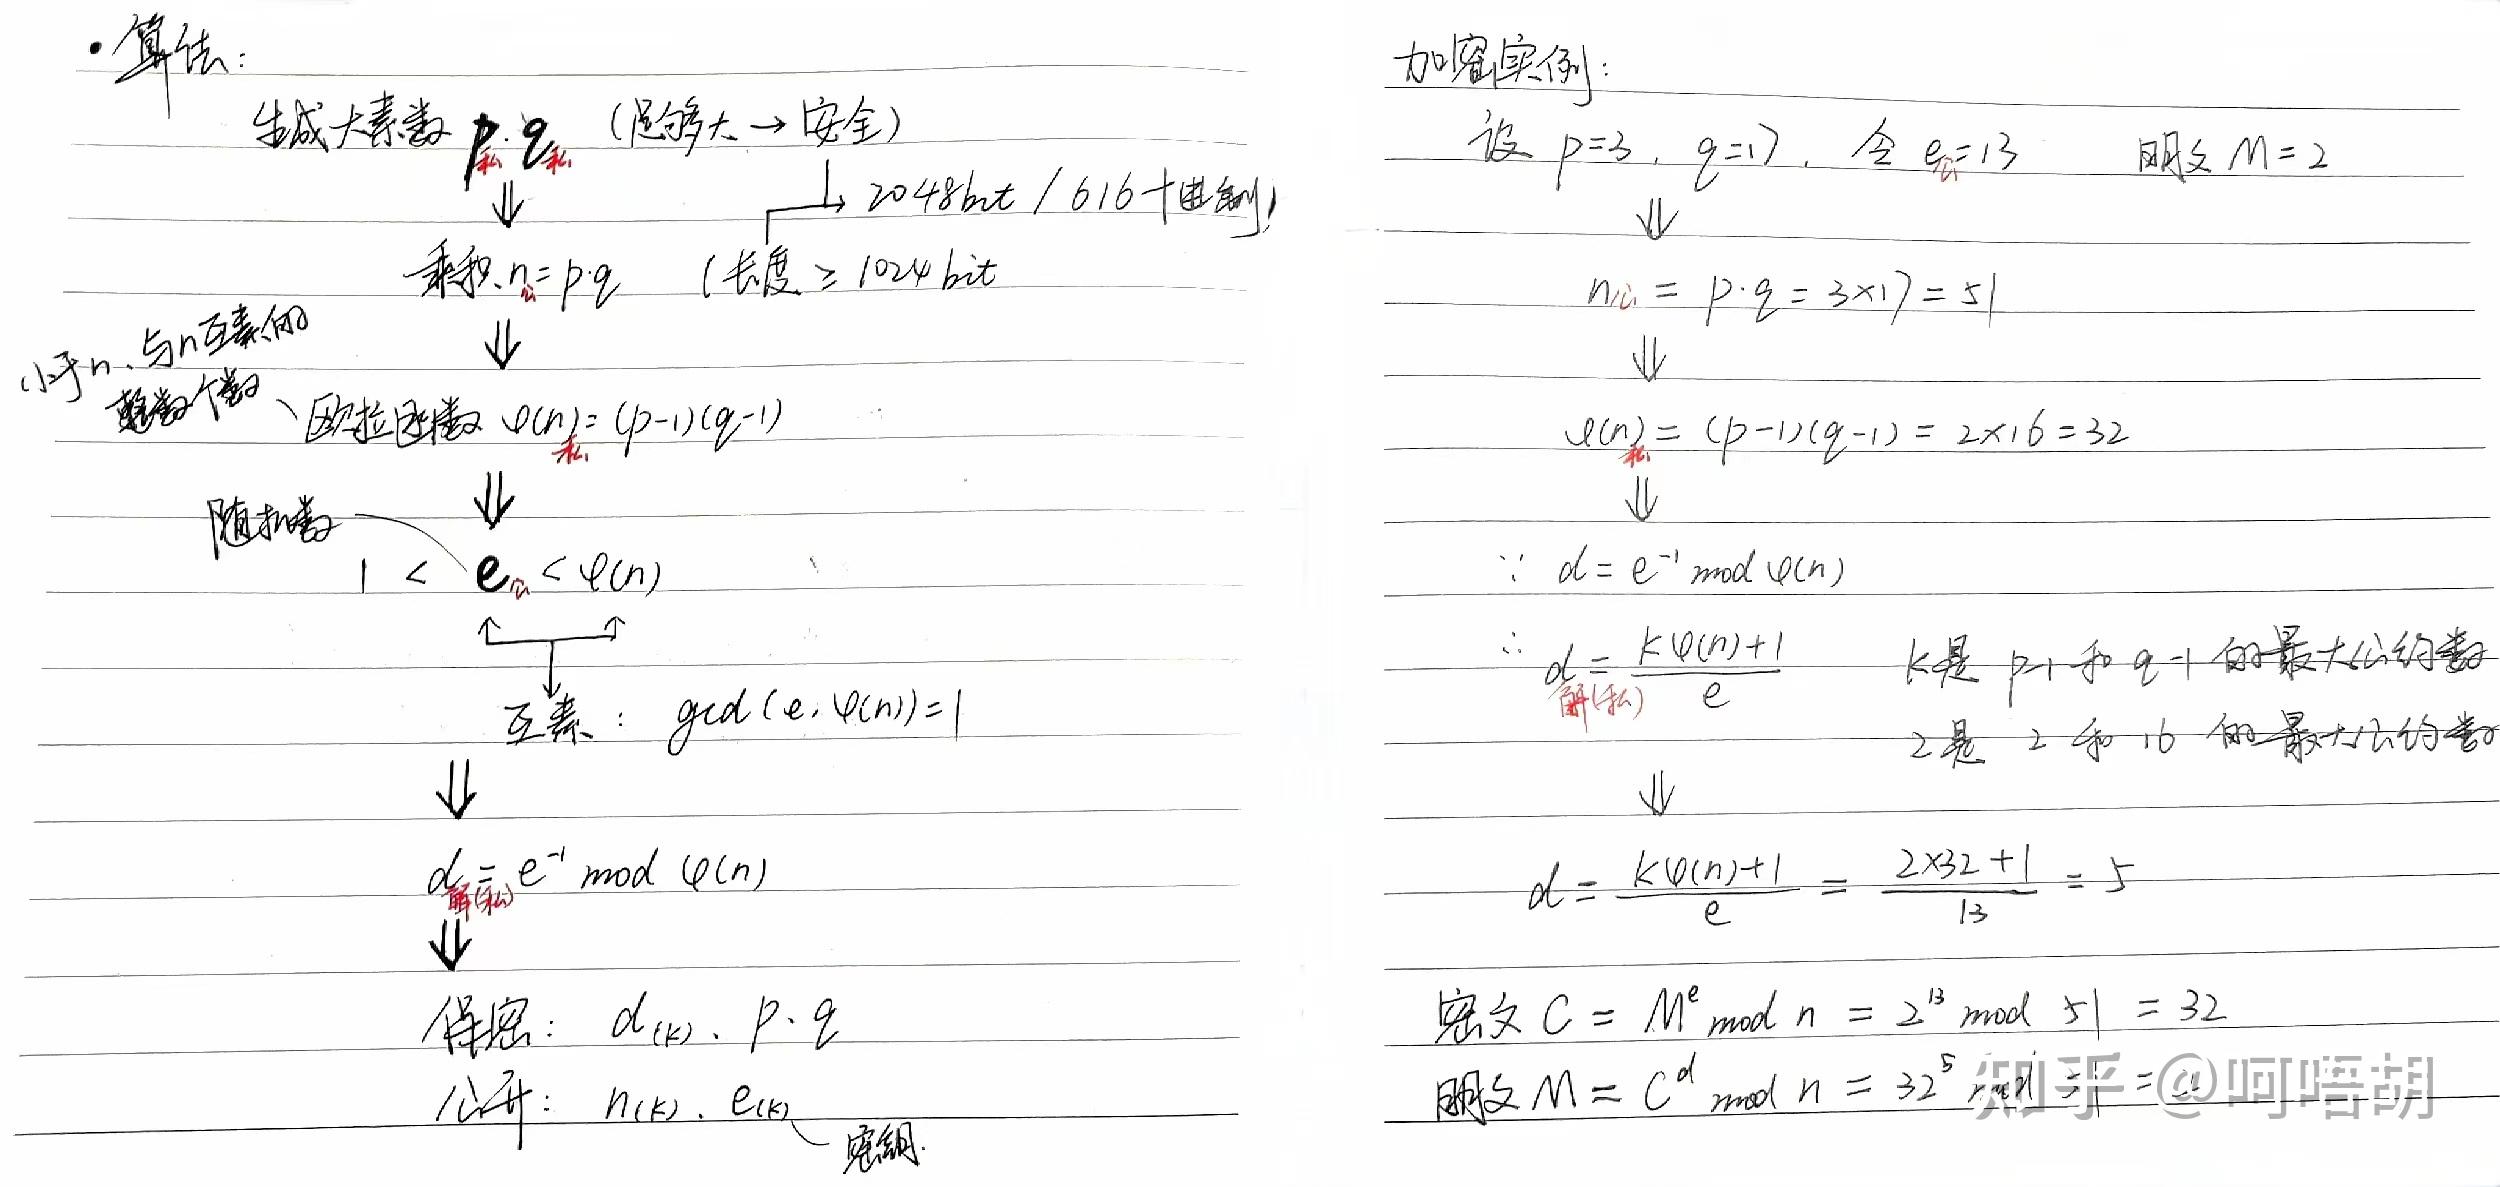 • 算法:
生成大素数 p私 · q私 (足够大 → 安全)
2048bit / 616十进制)
乘积 n公 = p·q (长度 ≥ 1024 bit
小于n、与n互素的
整数个数
欧拉函数 φ(n)私 = (p-1)(q-1)
随机数
1 < e公 < φ(n)
互素: gcd(e, φ(n))=1
d解(私) = e⁻¹ mod φ(n)
保密: d(k)、p、q
公开: n(k)、e(k)
密钥.
加密实例:
设 p=3, q=17, 令 e公=13 明文 M=2
n公 = p·q = 3×17 = 51
φ(n)私 = (p-1)(q-1) = 2×16 = 32
∵ d = e⁻¹ mod φ(n)
∴ d解(私) = (kφ(n)+1)/e k是 p-1 和 q-1 的最大公约数
2是 2 和 16 的最大公约数
d = (kφ(n)+1)/e = (2×32+1)/13 = 5
密文 C = Mᵉ mod n = 2¹³ mod 51 = 32
明文 M = Cᵈ mod n = 32⁵ mod 51 = 2
知乎 @呵唔胡